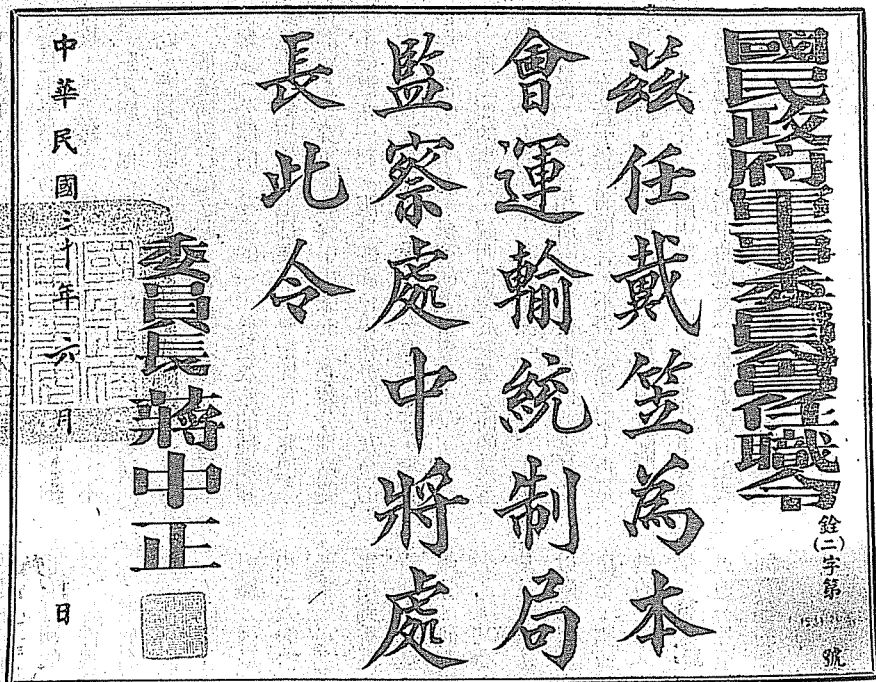 國民政府軍事委員會任職令
銓(二)字第
號
茲任戴笠為本
會運輸統制局
監察處中將處
長此令
委員長蔣中正
中華民國三十年六月 日